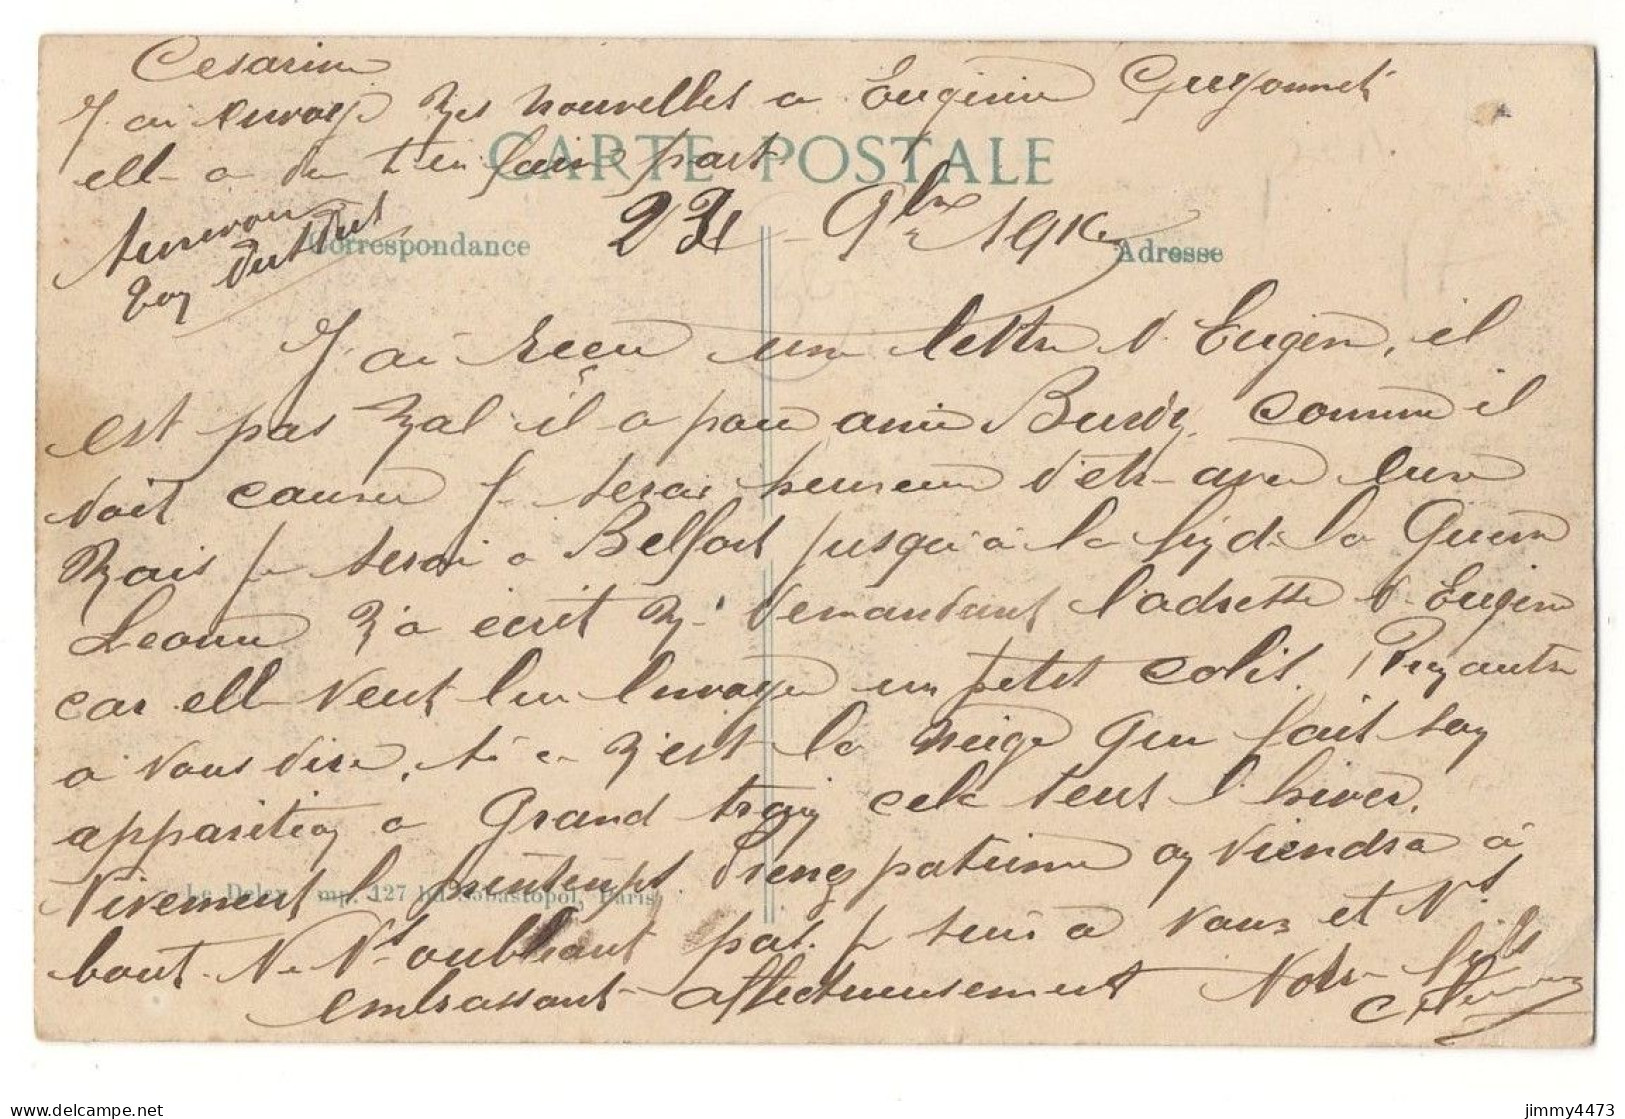 Cesarine
J. ai envoyé mes nouvelles a Eugenie Guyonnet
elle a du t'en faire part
CARTE POSTALE
Aurevoir
ton
23 - 9bre 191
Correspondance
Adresse
J. ai recu une lettre d. Eugene, il
est pas mal il a pour ami Burdy, comme il
doit causer je serai heureux d'etre avec luie
Mais je serai a Belfort jusqu'à la fin de la Guerre
Leonie m'a écrit me demandant l'adresse d. Eugene
car elle veut lui envoyer un petit colis. Rien autre
a vous dire, si ce n'est la neige qui fait son
apparition a Grand train cela sent l'hiver.
Vivement le printemps. Prenez patience on viendra à
Le Deley, imp. 127 bd Sébastopol, Paris
bout. Ne Ns oubliant pas. je suis a vous et Ns
embrassant affectueusement Votre fils